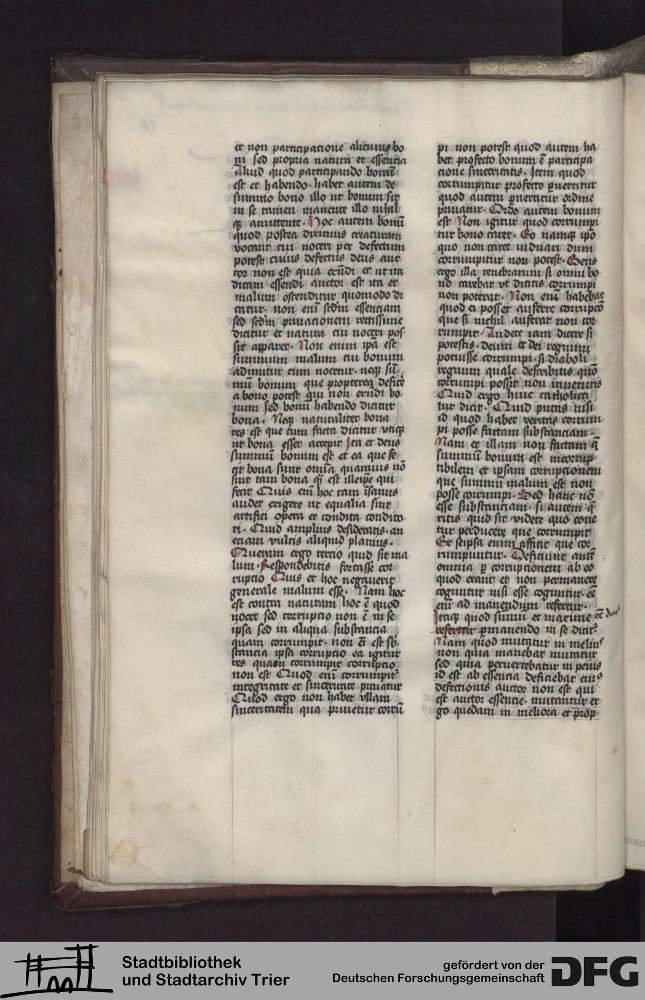 et non participatione alicuius bo
ni sed propria natura et essentia
Aliud quod participando bonū
est et habendo. habet autem de
summo bono illo ut bonum sit
in se tamen manente illo nihil
amittente. Hoc autem bonū
quod postea diximus creaturam
vocant cui noceri per defectum
potest cuius defectus deus auc
tor non est quia
essendi auctor est ita et
malum ostenditur quomodo di
catur. non enī scdm essentiam
sed scdm priuacionem verissime
dicitur et natura cui nocere pos
sit apparet. Non enim ipa est
summum malum cui bonum
adimitur cum nocetur. neqz sū
mū bonum que propterea deficere
a bono potest qui non
sed bonū habendo dicitur
bona. Neqz naturaliter bona
res est que cum facta dicitur utiqz
ut bona esset accepit Ita et deus
summū bonum est et ea que fe
cit bona sunt omīa quamuis nō
sint tam bona est ille ipe qui
fecit Quis enī hoc tam īsanus
audet exigere ut equalia sint
artifici opera et condita condito
ri. Quid amplius desideratis. an
eciam vultis aliquid planius.
Queram ergo tercio quid sit ma
lum. Respondebitis fortasse cor
ruptio Quis et hoc negauerit
generale malum esse. Nam hoc
est contra naturam hoc ē quod
nocet sed corruptio non ē in se
ipsa sed in aliqua substancia
quam corrumpit. non
stancia ipsa corruptio ea igitur
res quam corrumpit corruptio
non est Quod enī corrumpit
integritate et sinceritate priuatur
Quod ergo non habet ullam
sinceritatem qua priuetur corrū
pi non potest quod autem ha
bet profecto bonum ē participa
cione sinceritatis. Item quod
corrumpitur profecto puertitur
quod autem puertitur ordine
priuatur. Ordo autem bonum
est Non igitur quod corrumpi
tur bono caret. Eo namqz ipō
quo non caret viduari dum
corrumpitur non potest. Gens
ergo illa tenebrarum si omni bo
no carebat ut dicitis corrumpi
non poterat. Non enī habebat
quod ei posset auferre corrupcō
que si nichil auferat non cor
rumpit. Audete iam dicere si
potestis. deum et dei regnum
potuisse corrumpi. si diaboli
regnum quale describitis quō
corrumpi possit non inuenitis
Quid ergo huic catholica
tur dicit. Quid putas nisi
id quod habet veritas corrum
pi posse factam substanciam.
Nam et illam non factam q̄
summū bonum est incorrup
tibilem et ipsam corrupcionem
que summū malum est non
posse corrumpi. Sed hanc nō
esse substanciam. si autem q
ritis quid sit videte quo cone
tur perducere que corrumpit
Ex seipsa enim afficit que cor
rumpuntur. Deficiunt autē
omnia p corrupcionem ab eo
quod erant et non permanere
coguntur nisi esse coguntur. ēē
enī ad manendum refertur.
Itaqz quod summe et maxime ēē dicit
refertur pmanendo in se dicitr
Nam quod mutatur in melius
non quia manebat mutatur
sed quia peruertebatur in peius
id est ab essencia deficiebat cuiꝰ
defectionis auctor non est qui
est auctor essencie. mutantur er
go quedam in meliora et prop

Stadtbibliothek
und Stadtarchiv Trier
gefördert von der
Deutschen Forschungsgemeinschaft
DFG